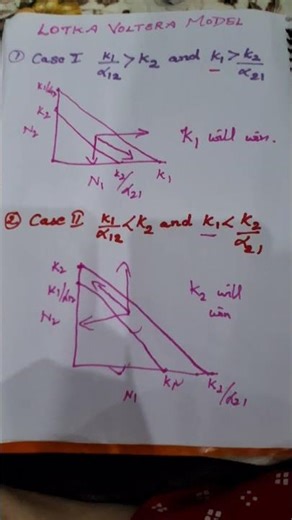 LOTKA VOLTERA MODEL
① Case I K1/α12 > K2 and K1 > K2/α21
K1/α12
K2
N2
K1 will win.
N1 K2/α21 K1
② Case II K1/α12 < K2 and K1 < K2/α21
K2
K1/α12
K2 will
win
N2
K1 K2/α21
N1